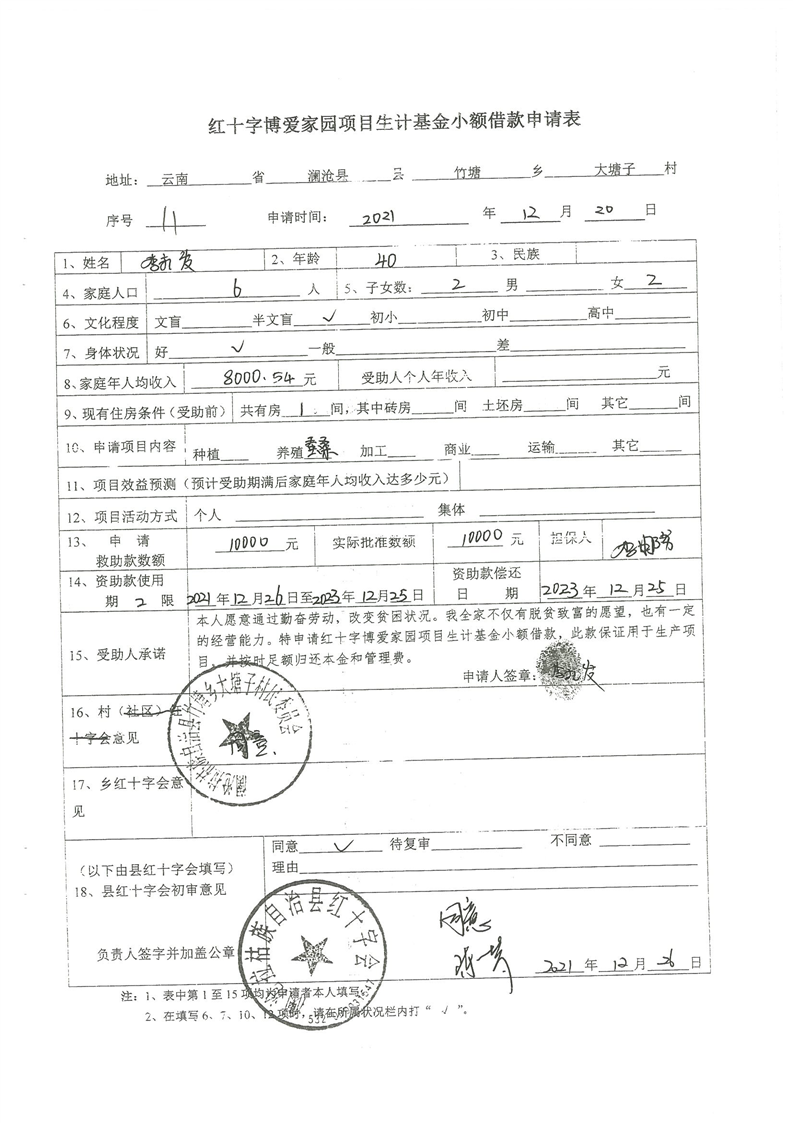 红十字博爱家园项目生计基金小额借款申请表
地址： 云南 省 澜沧县 县 竹塘 乡 大塘子 村
序号 11 申请时间： 2021 年 12 月 20 日
1、姓名 发 2、年龄 40 3、民族
4、家庭人口 6 人 5、子女数： 2 男 女 2
6、文化程度 文盲 半文盲 √ 初小 初中 高中
7、身体状况 好 √ 一般 差
8、家庭年人均收入 8000.54 元 受助人个人年收入 元
9、现有住房条件（受助前） 共有房 1 间，其中砖房 间 土坯房 间 其它 间
10、申请项目内容 种植 养殖 蚕桑 加工 商业 运输 其它
11、项目效益预测（预计受助期满后家庭年人均收入达多少元）
12、项目活动方式 个人 集体
13、申请救助款数额 10000 元 实际批准数额 10000 元 担保人
14、资助款使用期 2 限 2021年12月26日至2023年12月25日 资助款偿还日期 2023年 12 月 25 日
15、受助人承诺
本人愿意通过勤奋劳动，改变贫困状况。我全家不仅有脱贫致富的愿望，也有一定
的经营能力。特申请红十字博爱家园项目生计基金小额借款，此款保证用于生产项
目，并按时足额归还本金和管理费。
申请人签章： 发
16、村（社区）红
十字会意见
同意.
竹塘乡大塘子村民委员会
17、乡红十字会意
见
（以下由县红十字会填写）
18、县红十字会初审意见
同意 √ 待复审 不同意
理由
负责人签字并加盖公章
拉祜族自治县红十字会
同意
2021 年 12 月 26 日
注：1、表中第1至15项均为申请者本人填写
2、在填写6、7、10、12项时，请在所属状况栏内打“ √ ”。